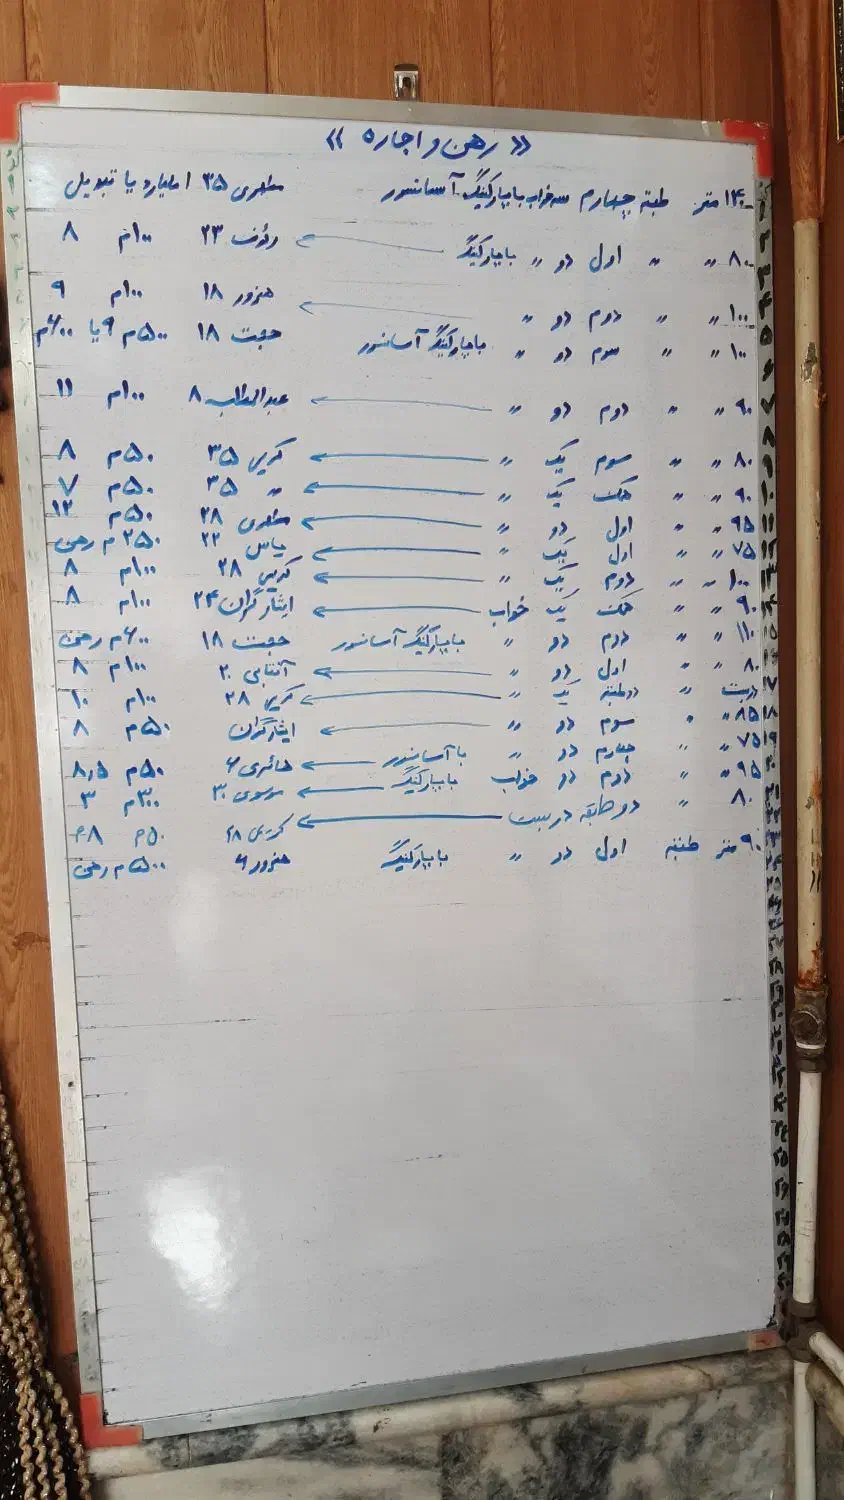 « رهن و اجاره »
۱۴۰ متر طبقه چهارم سه خواب با پارکینگ آسانسور مطهری ۳۵ ۱ میلیارد یا تبدیل
۸۰ 〃 〃 اول دو 〃 با پارکینگ ← رئوف ۲۳ ۱۰۰م ۸
۱۰۰ 〃 〃 دوم دو 〃 ← هنرور ۱۸ ۱۰۰م ۹
۱۰۰ 〃 〃 سوم دو 〃 با پارکینگ آسانسور حجت ۱۸ ۵۰۰م ۹ یا ۶۰۰م
۹۰ 〃 〃 دوم دو 〃 ← عبدالمطلب ۸ ۱۰۰م ۱۱
۸۰ 〃 〃 سوم یک 〃 ← کریمی ۳۵ ۵۰م ۸
۹۰ 〃 〃 همکف یک 〃 ← 〃 ۳۵ ۵۰م ۷
۹۵ 〃 〃 اول دو 〃 ← مطهری ۲۸ ۵۰م ۱۲
۷۵ 〃 〃 اول یک 〃 ← یاس ۲۲ ۲۵۰م رهن
۱۰۰ 〃 〃 دوم یک 〃 ← کریمی ۲۸ ۱۰۰م ۸
۹۰ 〃 〃 همکف یک خواب ← ایثارگران ۲۴ ۱۰۰م ۸
۱۱۰ 〃 〃 دوم دو 〃 با پارکینگ آسانسور حجت ۱۸ ۶۰۰م رهن
۸۰ 〃 〃 اول دو 〃 ← آفتابی ۲۰ ۱۰۰م ۸
دربست 〃 دو طبقه یک 〃 ← کریمی ۲۸ ۱۰۰م ۱۰
۸۵ 〃 〃 سوم دو 〃 ← ایثارگران ۵۰م ۸
۷۵ 〃 〃 چهارم دو 〃 با آسانسور ← حائری ۶ ۵۰م ۸٫۵
۹۵ 〃 〃 دوم دو خواب با پارکینگ ← موسوی ۳۰ ۳۰۰م ۳
۸۰ 〃 دو طبقه دربست ← کریمی ۲۸ ۵۰م ۸م
۹۰ متر طبقه اول دو 〃 با پارکینگ هنرور ۶ ۵۰۰م رهن